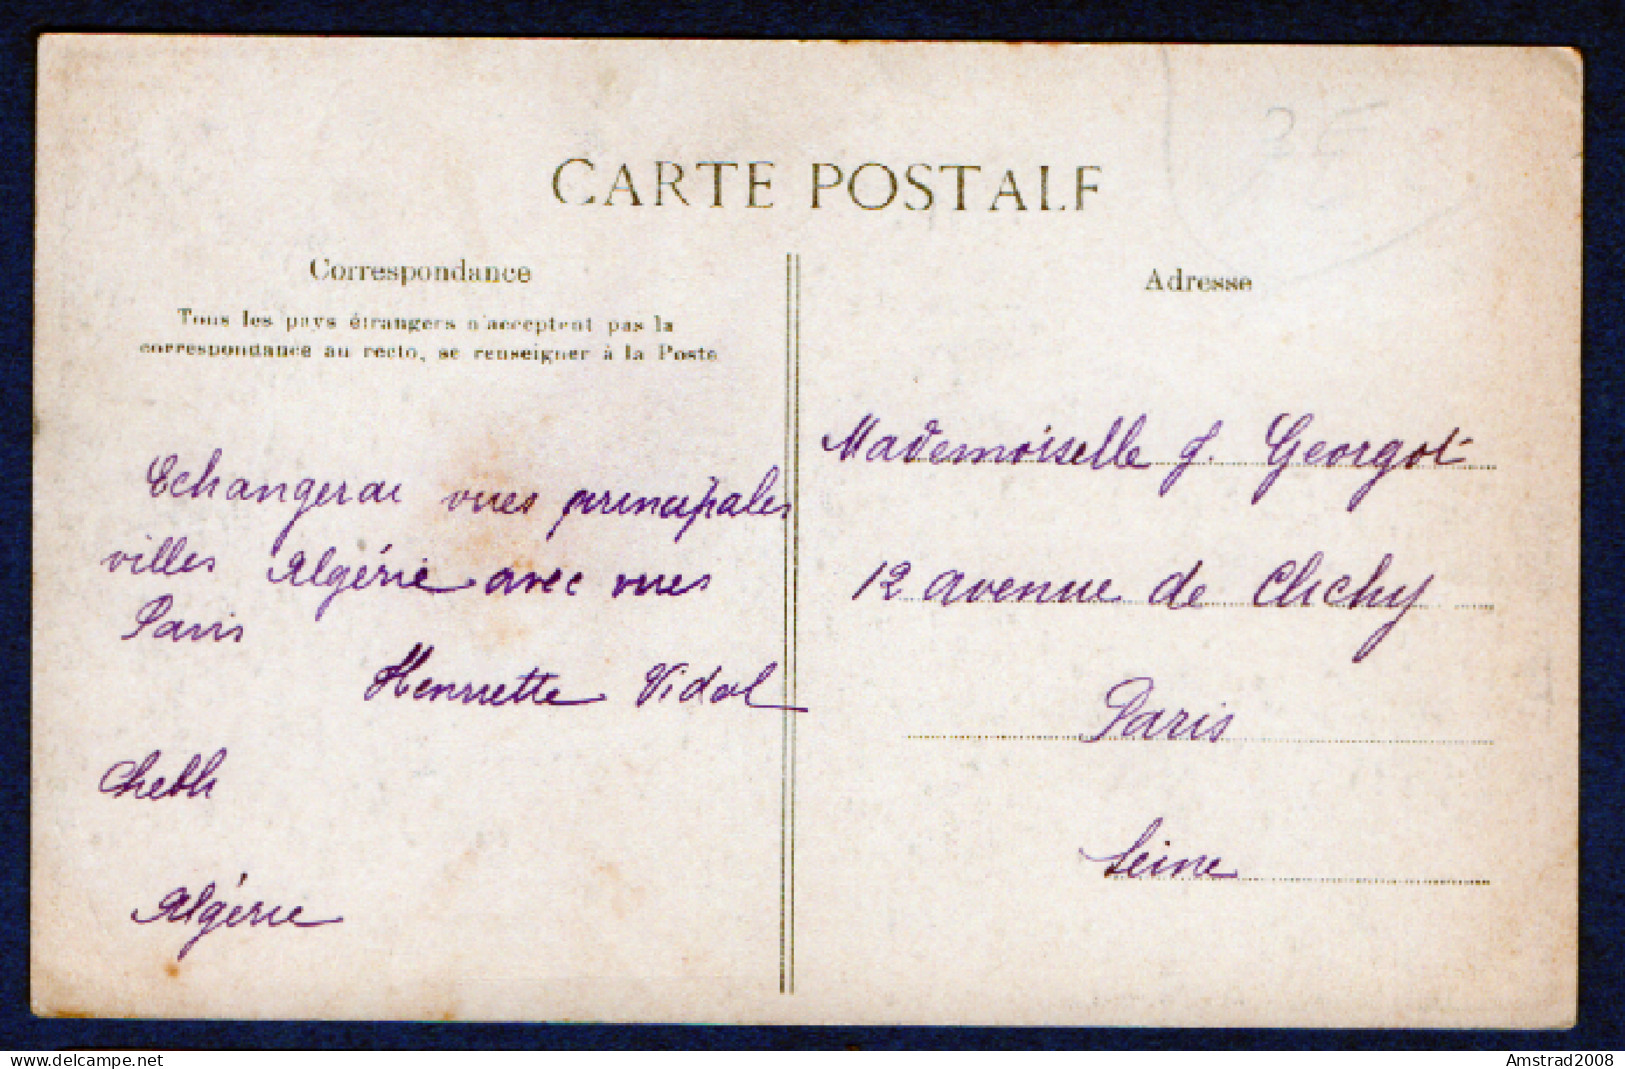 3 E
CARTE POSTALE
Correspondance
Tous les pays étrangers n'acceptent pas la
correspondance au recto, se renseigner à la Poste
Echangerai vues principales
villes Algérie avec vues
Paris
Henriette Vidal
Chebli
Algérie
Adresse
Mademoiselle J. Georgot
12 avenue de Clichy
Paris
Seine
delcampe.net
Amstrad2008